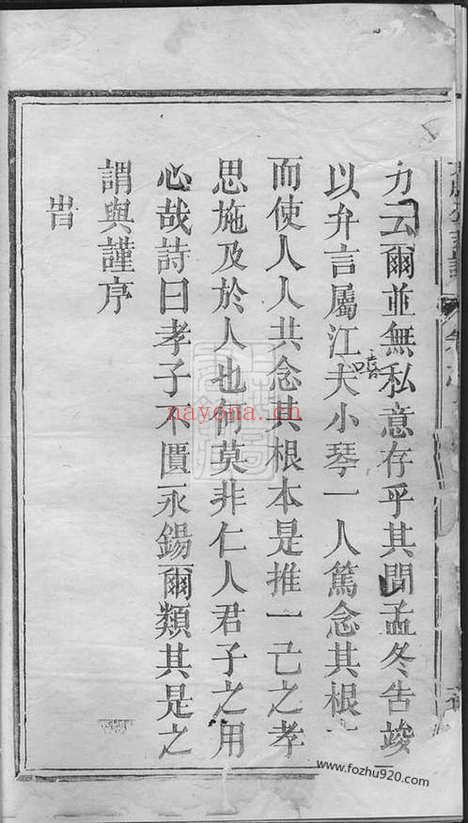 力云爾並無私意存乎其間孟冬告竣
以弁言屬江夫小琴一人篤念其根
嘻
而使人人共念其根本是推一己之孝
思施及於人也何莫非仁人君子之用
心哉詩曰孝子不匱永錫爾類其是之
謂與謹序
旹
nayona.cn
www.fozhu920.com